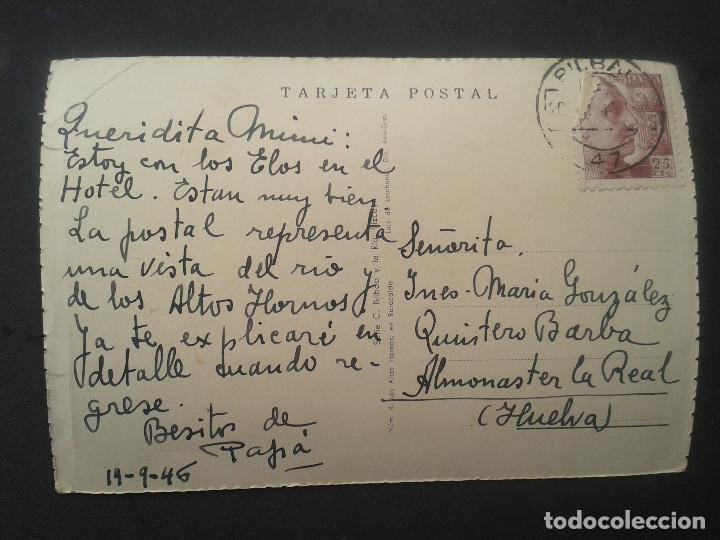 TARJETA POSTAL
Queridita Mimi:
Estoy con los Elos en el
Hotel. Estan muy bien
La postal representa
una vista del rio
de los Altos Hornos y
Ya te explicaré en
detalle cuando re-
grese.
Besitos de
Papá
19-9-46
Serie C. Bilbao y la Ría (Vizcaya)
Núm. 4. Los Altos Hornos, en Baracaldo
BILBAO
47
ESPAÑA
25
CTS
Señorita,
Ines-Maria González
Quintero Barba
Almonaster la Real
(Huelva)
todocoleccion
todocoleccion.net